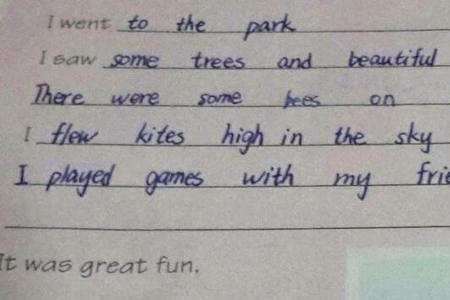 I went to the park
I saw some trees and beautiful
There were some bees on
I flew kites high in the sky
I played games with my
It was great fun.